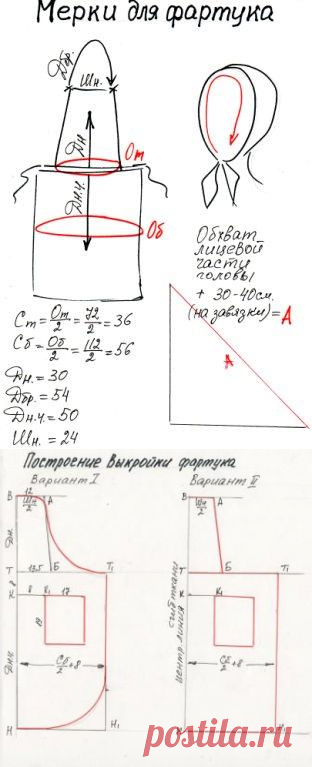 Мерки для фартука
Дбр.
Шн.
Дн
От
Дн.ч.
Об
Обхват
лицевой
части
головы
+ 30-40см.
(на завязки) = А
А
Ст = От/2 = 72/2 = 36
Сб = Об/2 = 112/2 = 56
Дн. = 30
Дбр. = 54
Дн.ч. = 50
Шн. = 24
Построение выкройки фартука
Вариант I
Вариант II
В 12 А
Шн/2
Дн.
Т 13,5 Б Т₁
8
К 8 К₁ 17
19
Сб/2 + 8
Дн.ч.
Н Н₁
В А
Шн/2
Т Б Т₁
К К₁
центр. линия
сгиб ткани
Сб/2 + 8
postila.ru